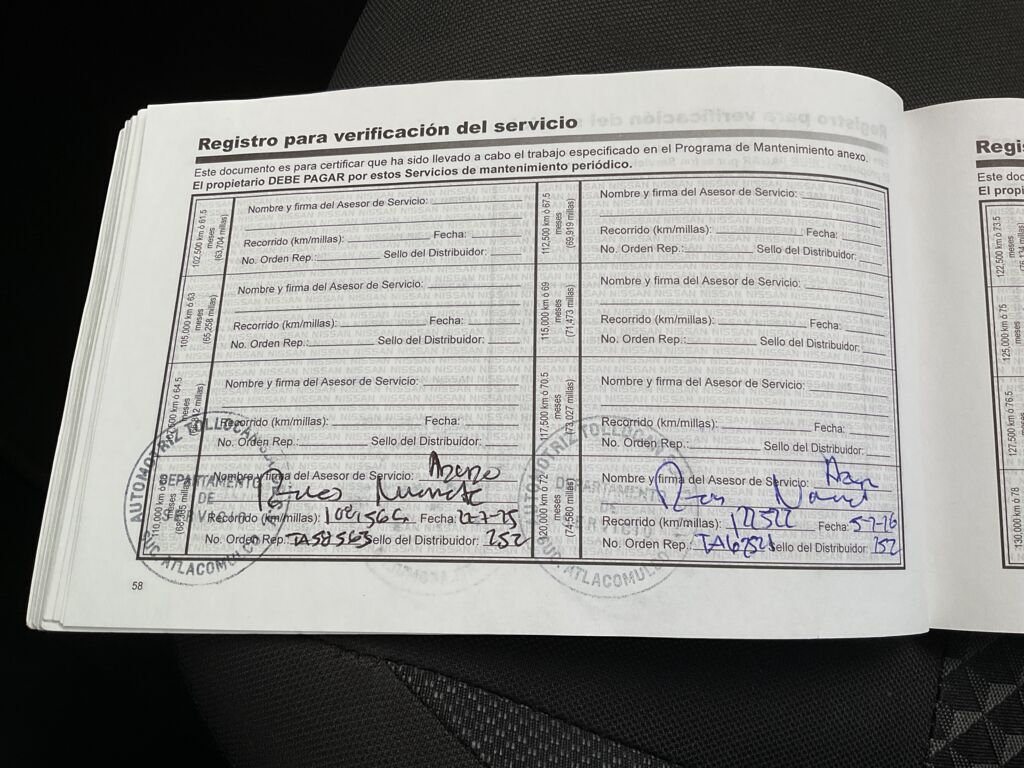 Registro para verificación del servicio
Este documento es para certificar que ha sido llevado a cabo el trabajo especificado en el Programa de Mantenimiento anexo.
El propietario DEBE PAGAR por estos Servicios de mantenimiento periódico.
102,500 km ó 61.5 meses (63,704 millas)
Nombre y firma del Asesor de Servicio:
Recorrido (km/millas): Fecha:
No. Orden Rep.: Sello del Distribuidor:
105,000 km ó 63 meses (65,258 millas)
Nombre y firma del Asesor de Servicio:
Recorrido (km/millas): Fecha:
No. Orden Rep.: Sello del Distribuidor:
km ó 64.5 meses
Nombre y firma del Asesor de Servicio:
Recorrido (km/millas): Fecha:
No. Orden Rep.: Sello del Distribuidor:
110,000 km
Nombre y firma del Asesor de Servicio:
Recorrido (km/millas): Fecha: 22-7-25
No. Orden Rep.: TA58565 Sello del Distribuidor: 252
AUTOMOTRIZ TOLLOCAN
DEPARTAMENTO
DE
SERVICIO
SUC. ATLACOMULCO
112,500 km ó 67.5 meses (69,919 millas)
Nombre y firma del Asesor de Servicio:
Recorrido (km/millas): Fecha:
No. Orden Rep.: Sello del Distribuidor:
115,000 km ó 69 meses (71,473 millas)
Nombre y firma del Asesor de Servicio:
Recorrido (km/millas): Fecha:
No. Orden Rep.: Sello del Distribuidor:
117,500 km ó 70.5 meses (73,027 millas)
Nombre y firma del Asesor de Servicio:
Recorrido (km/millas): Fecha:
No. Orden Rep.: Sello del Distribuidor:
120,000 km ó 72 meses (74,580 millas)
Nombre y firma del Asesor de Servicio:
Recorrido (km/millas): 122522 Fecha: 5-1-26
No. Orden Rep.: Sello del Distribuidor: 252
AUTOMOTRIZ TOLLOCAN
DEPARTAMENTO
DE
SERVICIO
SUC. ATLACOMULCO
58
Regis
Este doc
El propi
122,500 km ó 73.5 meses
125,000 km ó 75 meses
127,500 km ó 76.5 meses
130,000 km ó 78